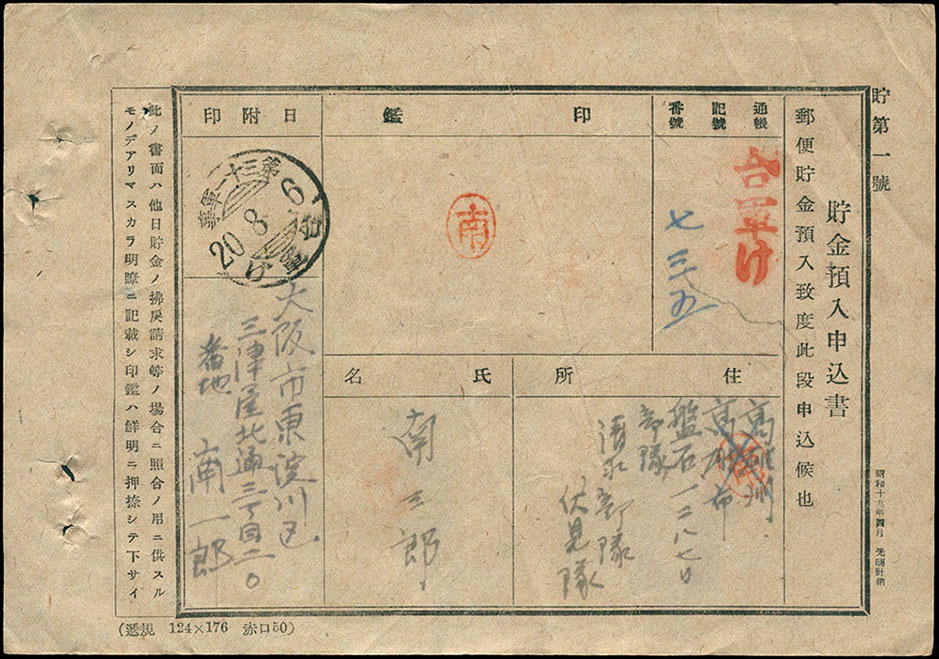 貯第一號
貯金預入申込書
郵便貯金預入致度此段申込候也
昭和十九年四月
通帳
記號
番號
台軍け
七三五
印鑑
南
日附印
第三十二軍事
20.8.6
台軍け
住所
高雄州
高雄市
盤石一二八七〇
部隊
清水部隊
伏見隊
氏名
南三郎
大阪市東淀川区
三津屋北通三丁目二〇
番地
南一郎
此ノ書面ハ他日貯金ノ拂戻請求等ノ場合ニ照合ノ用ニ供スル
モノデアリマスカラ明瞭ニ記載シ印鑑ハ鮮明ニ押捺シテ下サイ
(遞規 124×176 赤口50)